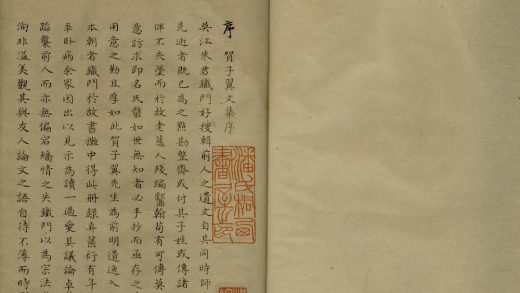 序 賀子翼文集序
吳江朱君鐵門好搜輯前人之遺文自其同時師
先逝者既已為之點勘整齊或付其子姓或傳諸
俾不失墜而於故老舊人殘編斷翰苟有可傳莫
意訪求即名氏翳如世無知者必手抄而亟存之
用意之勤且厚如此賀子翼先生為前明遺逸入
本朝者鐵門於故書攤中得此冊録弆舊衍有年
卧病余家因出以見示為讀一過愛其議論卓
蹈襲前人而亦無偏宕矯情之失鐵門以為宗法
洵非溢美觀其與友人論文之語自待不薄而時